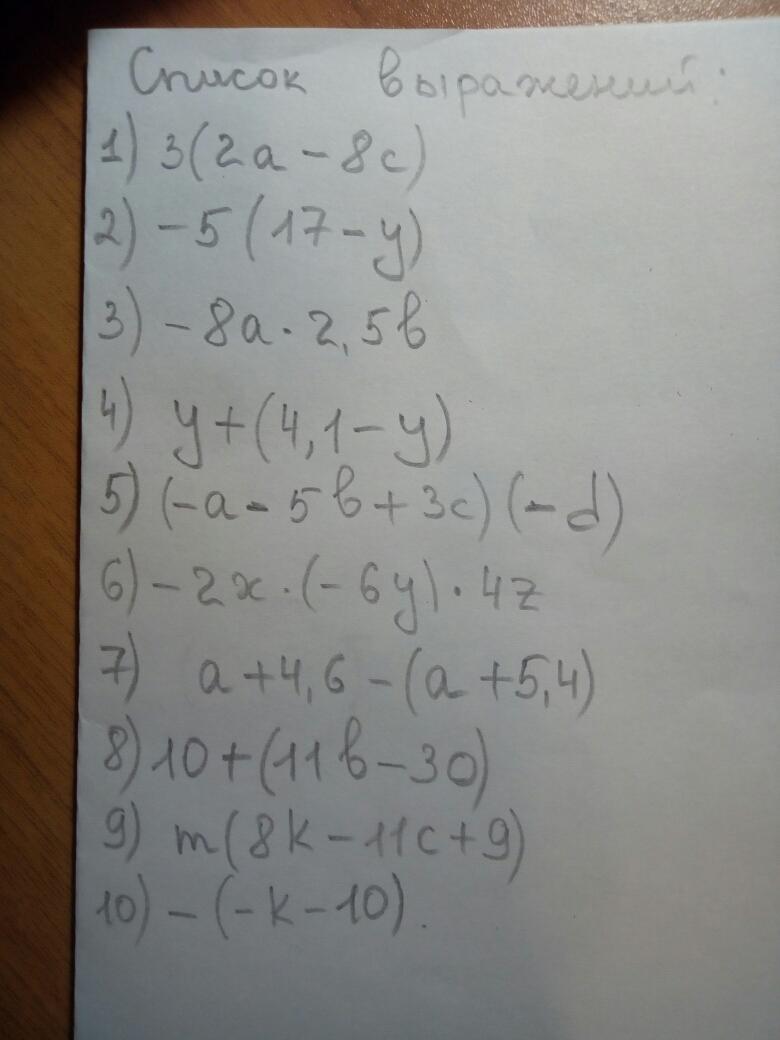 Список выражений:
1) 3(2a - 8c)
2) -5(17-y)
3) -8a · 2,5b
4) y+(4,1-y)
5) (-a - 5b + 3c)(-d)
6) -2x · (-6y) · 4z
7) a+4,6 -(a +5,4)
8) 10+(11b-30)
9) m(8k-11c+9)
10) -(-k-10).